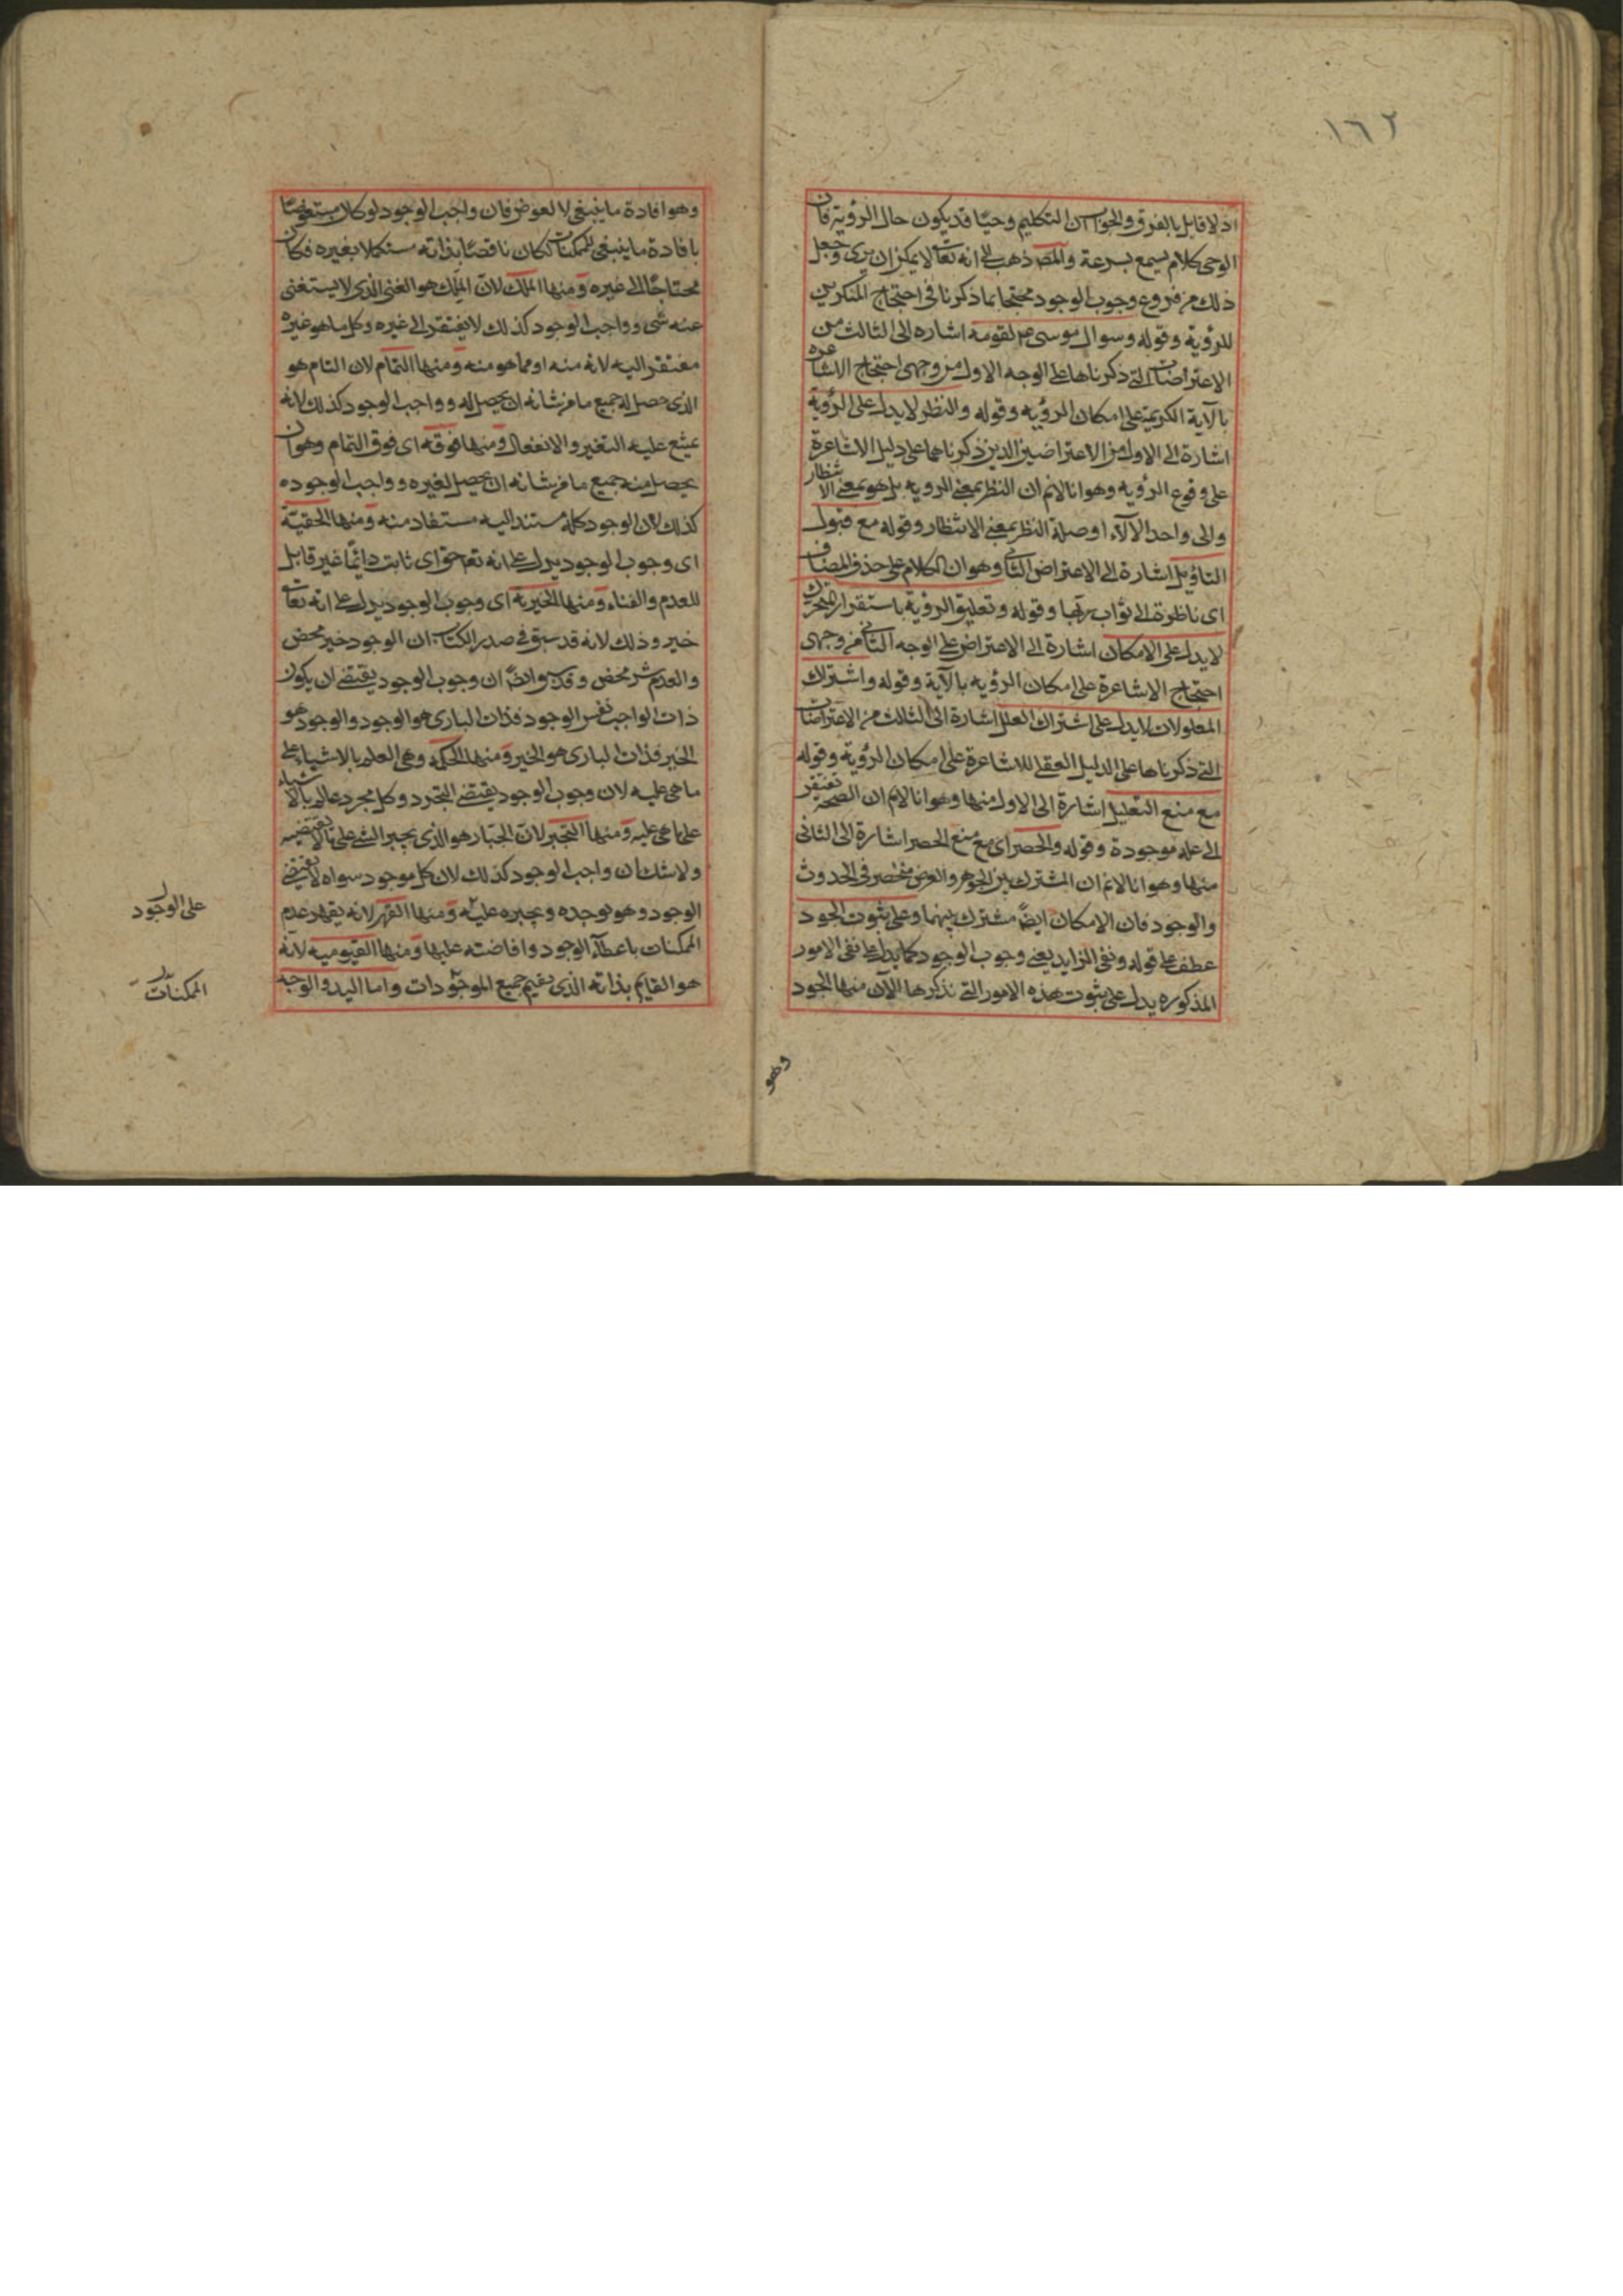 ١٦٢
اذ لا قايل بالفرق والجواب ان التكليم وحيًا قد يكون حال الرؤية فان
الوحى كلام يسمع بسرعة والمصـ ذهب الى انه تعالى لا يمكن ان يرى وجعل
ذلك من فروع وجوب الوجود محتجا بما ذكرنا فى احتجاج المنكرين
للرؤية وقوله وسوال موسى عم لقومه اشاره الى الثالث من
الاعتراضات التى ذكرناها على الوجه الاول من وجهى احتجاج الاشاعره
بالآية الكريمة على امكان الرؤيه وقوله والنظر لا يدل على الرؤية
اشارة الى الاول من الاعتراضين الذين ذكرناهما على دليل الاشاعرة
على وقوع الرؤيه وهو انا لانم ان النظر بمعنى الرويه بل هو بمعنى الانتظار
والى واحد الآلاء او صلة النظر بمعنى الانتظار وقوله مع قبول
التاؤيل اشارة الى الاعتراض الثانى وهو ان الكلام على حذف المضاف
اى ناظرة الى ثواب ربها وقوله وتعليق الرؤية باستقرار المتحرك
لا يدل على الامكان اشارة الى الاعتراض على الوجه الثانى من وجهى
احتجاج الاشاعرة على امكان الرؤيه بالآية وقوله واشتراك
المعلولات لا يدل على اشتراك العلل اشارة الى الثالث من الاعتراضات
التى ذكرناها على الدليل العقلى للاشاعرة على امكان الرؤية وقوله
مع منع التعليل اشارة الى الاول منها وهو انا لانم ان الصحة تفتقر
الى علة موجودة وقوله والحصر اى مع منع الحصر اشارة الى الثانى
منها وهو انا لانم ان المشترك بين الجوهر والعرض منحصر فى الحدوث
والوجود فان الامكان ايضًا مشترك بينهما وعلى ثبوت الجود
عطف على قوله ونفى الزايد يعنى وجوب الوجود كما يدل على نفى الامور
المذكوره يدل على ثبوت هذه الامور التى نذكرها الآن منها الجود
وهو
وهو افادة ما ينبغى لا لعوض فان واجب الوجود لو كان مستعوضًا
بافادة ما ينبغى للممكنات لكان ناقصًا بذاته مستكملا بغيره فكان
محتاجًا الى غيره ومنها الملك لان الملك هو الغنى الذى لا يستغنى
عنه شى وواجب الوجود كذلك لا يفتقر الى غيره وكل ما هو غيره
مفتقر اليه لانه منه او مما هو منه ومنها التمام لان التام هو
الذى حصل له جميع ما من شانه ان يحصل له وواجب الوجود كذلك لانه
يمتنع عليه التغير والانفعال ومنها فوقه اى فوق التمام وهو ان
يحصل منه جميع ما من شانه ان يحصل لغيره وواجب الوجود
كذلك لان الوجود كله مستند اليه مستفاد منه ومنها الحقيّة
اى وجوب الوجود يدل على انه تعم حق اى ثابت دايمًا غير قابل
للعدم والفناء ومنها الخيريه اى وجوب الوجود يدل على انه تعالى
خير وذلك لانه قد سبق فى صدر الكتاب ان الوجود خير محض
والعدم شر محض وقد سبق ايضًا ان وجوب الوجود يقتضى ان يكون
ذات الواجب نفس الوجود فذات البارى هو الوجود والوجود هو
الخير فذات البارى هو الخير ومنها الحكمه وهى العلم بالاشياء على
ما هى عليه لان وجوب الوجود يقتضى التجرد وكل مجرد عالم بالاشياء
على ما هى عليه ومنها التجبر لان الجبار هو الذى يجبر الشى على ما لا يقتضيه
ولا شك ان واجب الوجود كذلك لان كل موجود سواه لا يقتضى
الوجود وهو يوجده ويجبره عليه ومنها القهر لانه يقهر عدم
الممكنات باعطاء الوجود وافاضته عليها ومنها القيوميه لانه
هو القايم بذاته الذى يقيم جميع الموجودات واما اليد والوجه
على الوجود
الممكنات